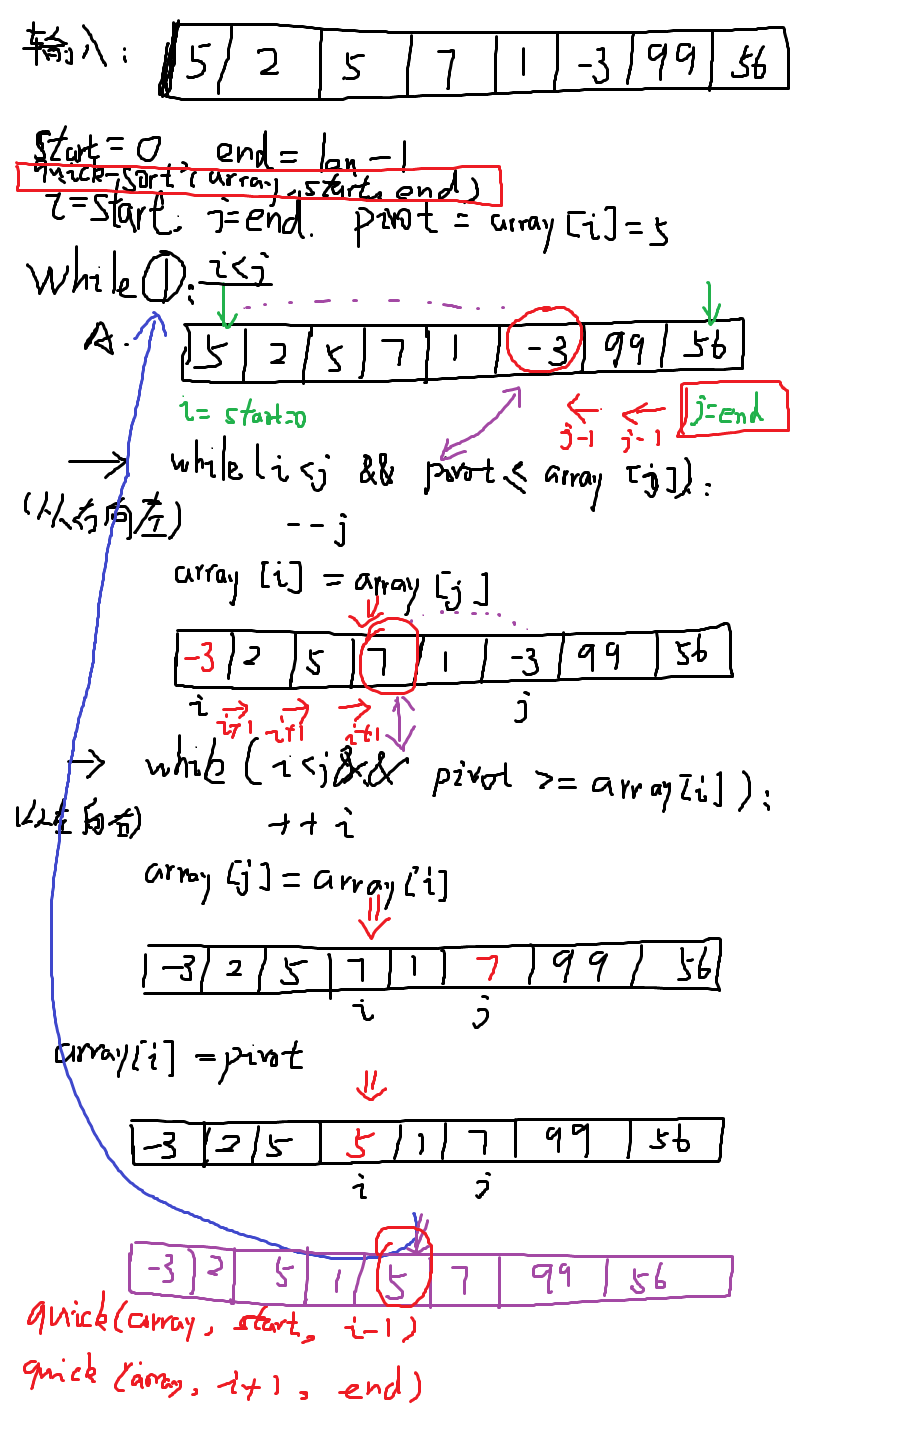 输入: 5 2 5 7 1 -3 99 56
start=0 end=len-1
quick-sort(array, start, end)
i=start. j=end. pivot = array[i]=5
While①: i<j
A. 5 2 5 7 1 -3 99 56
i= start=0 j-1 j-1 j=end
→ while(i<j && pivot ≤ array[j]):
(从右向左) --j
array[i] = array[j]
-3 2 5 7 1 -3 99 56
i i+1 i+1 i+1 j
→ while(i<j&& pivot >= array[i]):
从左向右) ++i
array[j]=array[i]
-3 2 5 7 1 7 99 56
i j
array[i]=pivot
-3 2 5 5 1 7 99 56
i j
-3 2 5 1 5 7 99 56
quick(array, start, i-1)
quick(array, i+1, end)